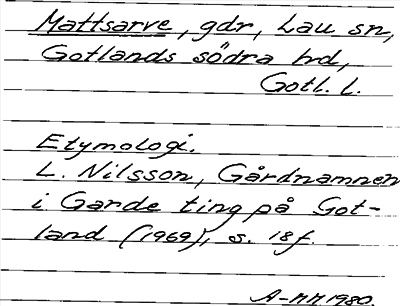 Mattsarve, gdr, Lau sn,
Gotlands södra hd,
Gotl. l.
Etymologi.
L. Nilsson, Gårdnamnen
i Garde ting på Got-
land (1969), s. 18f.
A-MM 1980.